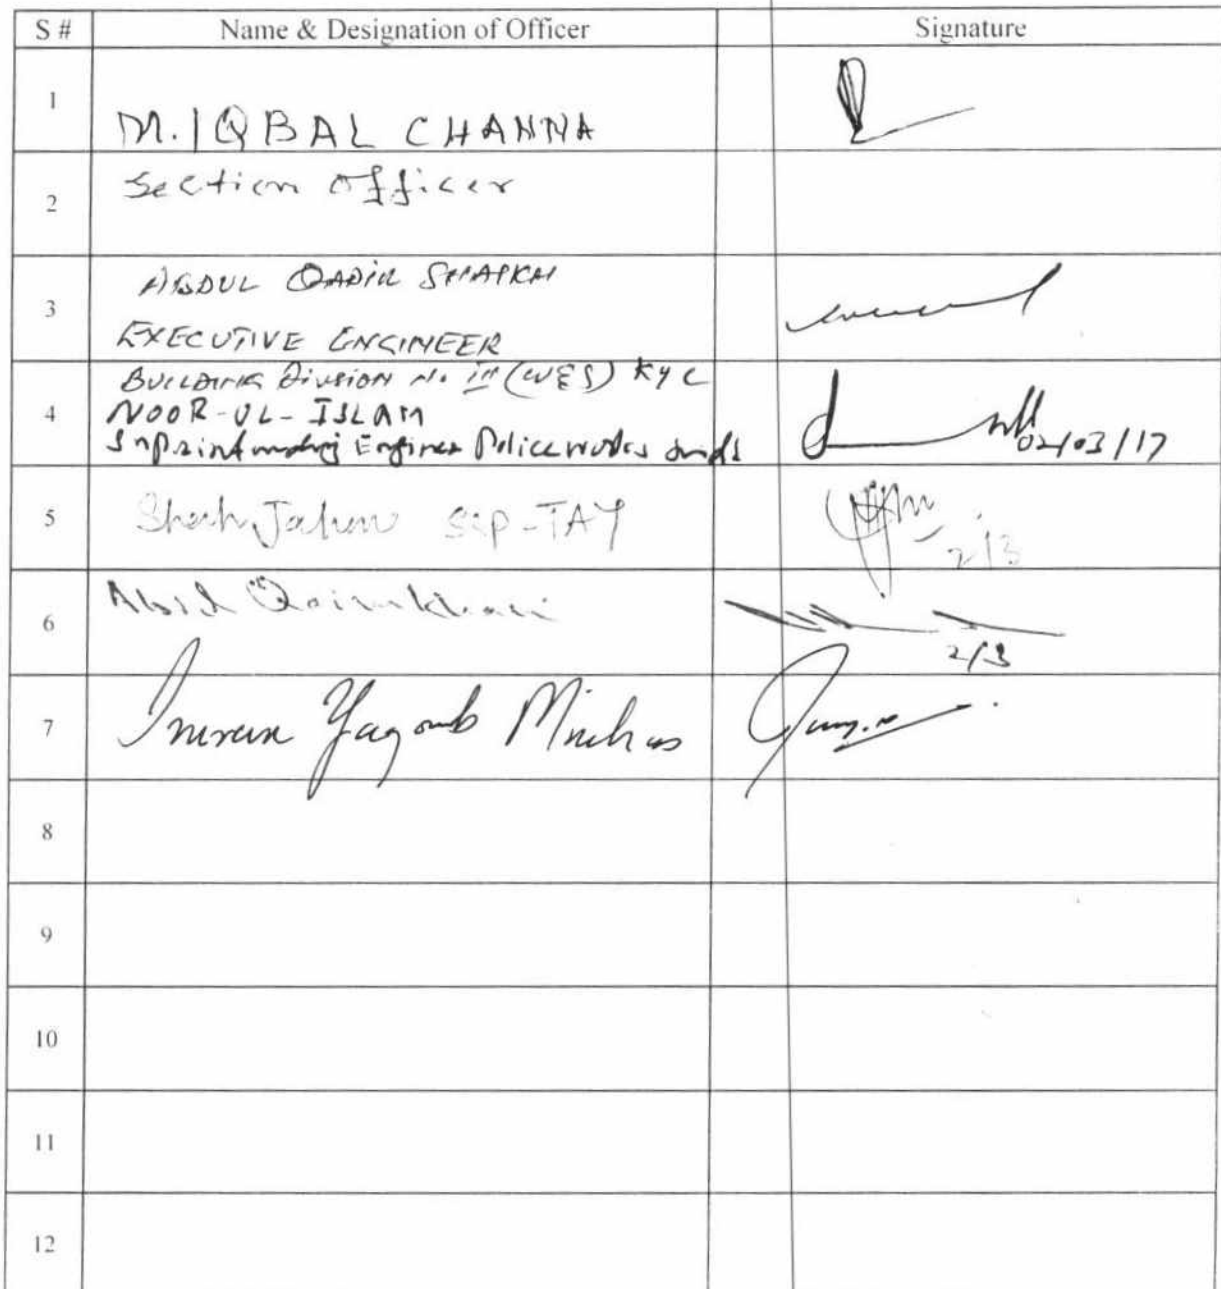 S # Name & Designation of Officer Signature
1
M. IQBAL CHANNA
2 Section Officer
ABDUL QADIR SHAIKH
3
EXECUTIVE ENGINEER
BUILDING DIVISION No. III (W&S) KYC
4 NOOR-UL-ISLAM
Engineer Police works
02/03/17
5 Shah Jahan SIP-TAY
2/3
6 Abid Qaimkhani
2/3
7 Imran Yaqoub Minhas
8
9
10
11
12